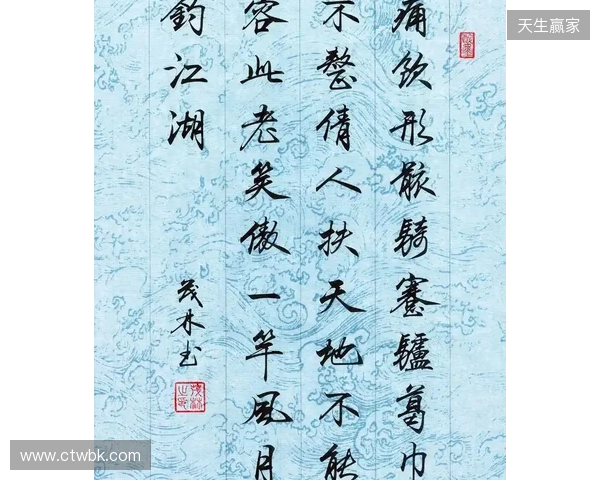 痛飲形骸騎蹇驢葛巾
不整倩人扶天地不能
容此老笑傲一竿風月
釣江湖
茂林书
天生赢家
www.ctwbk.com